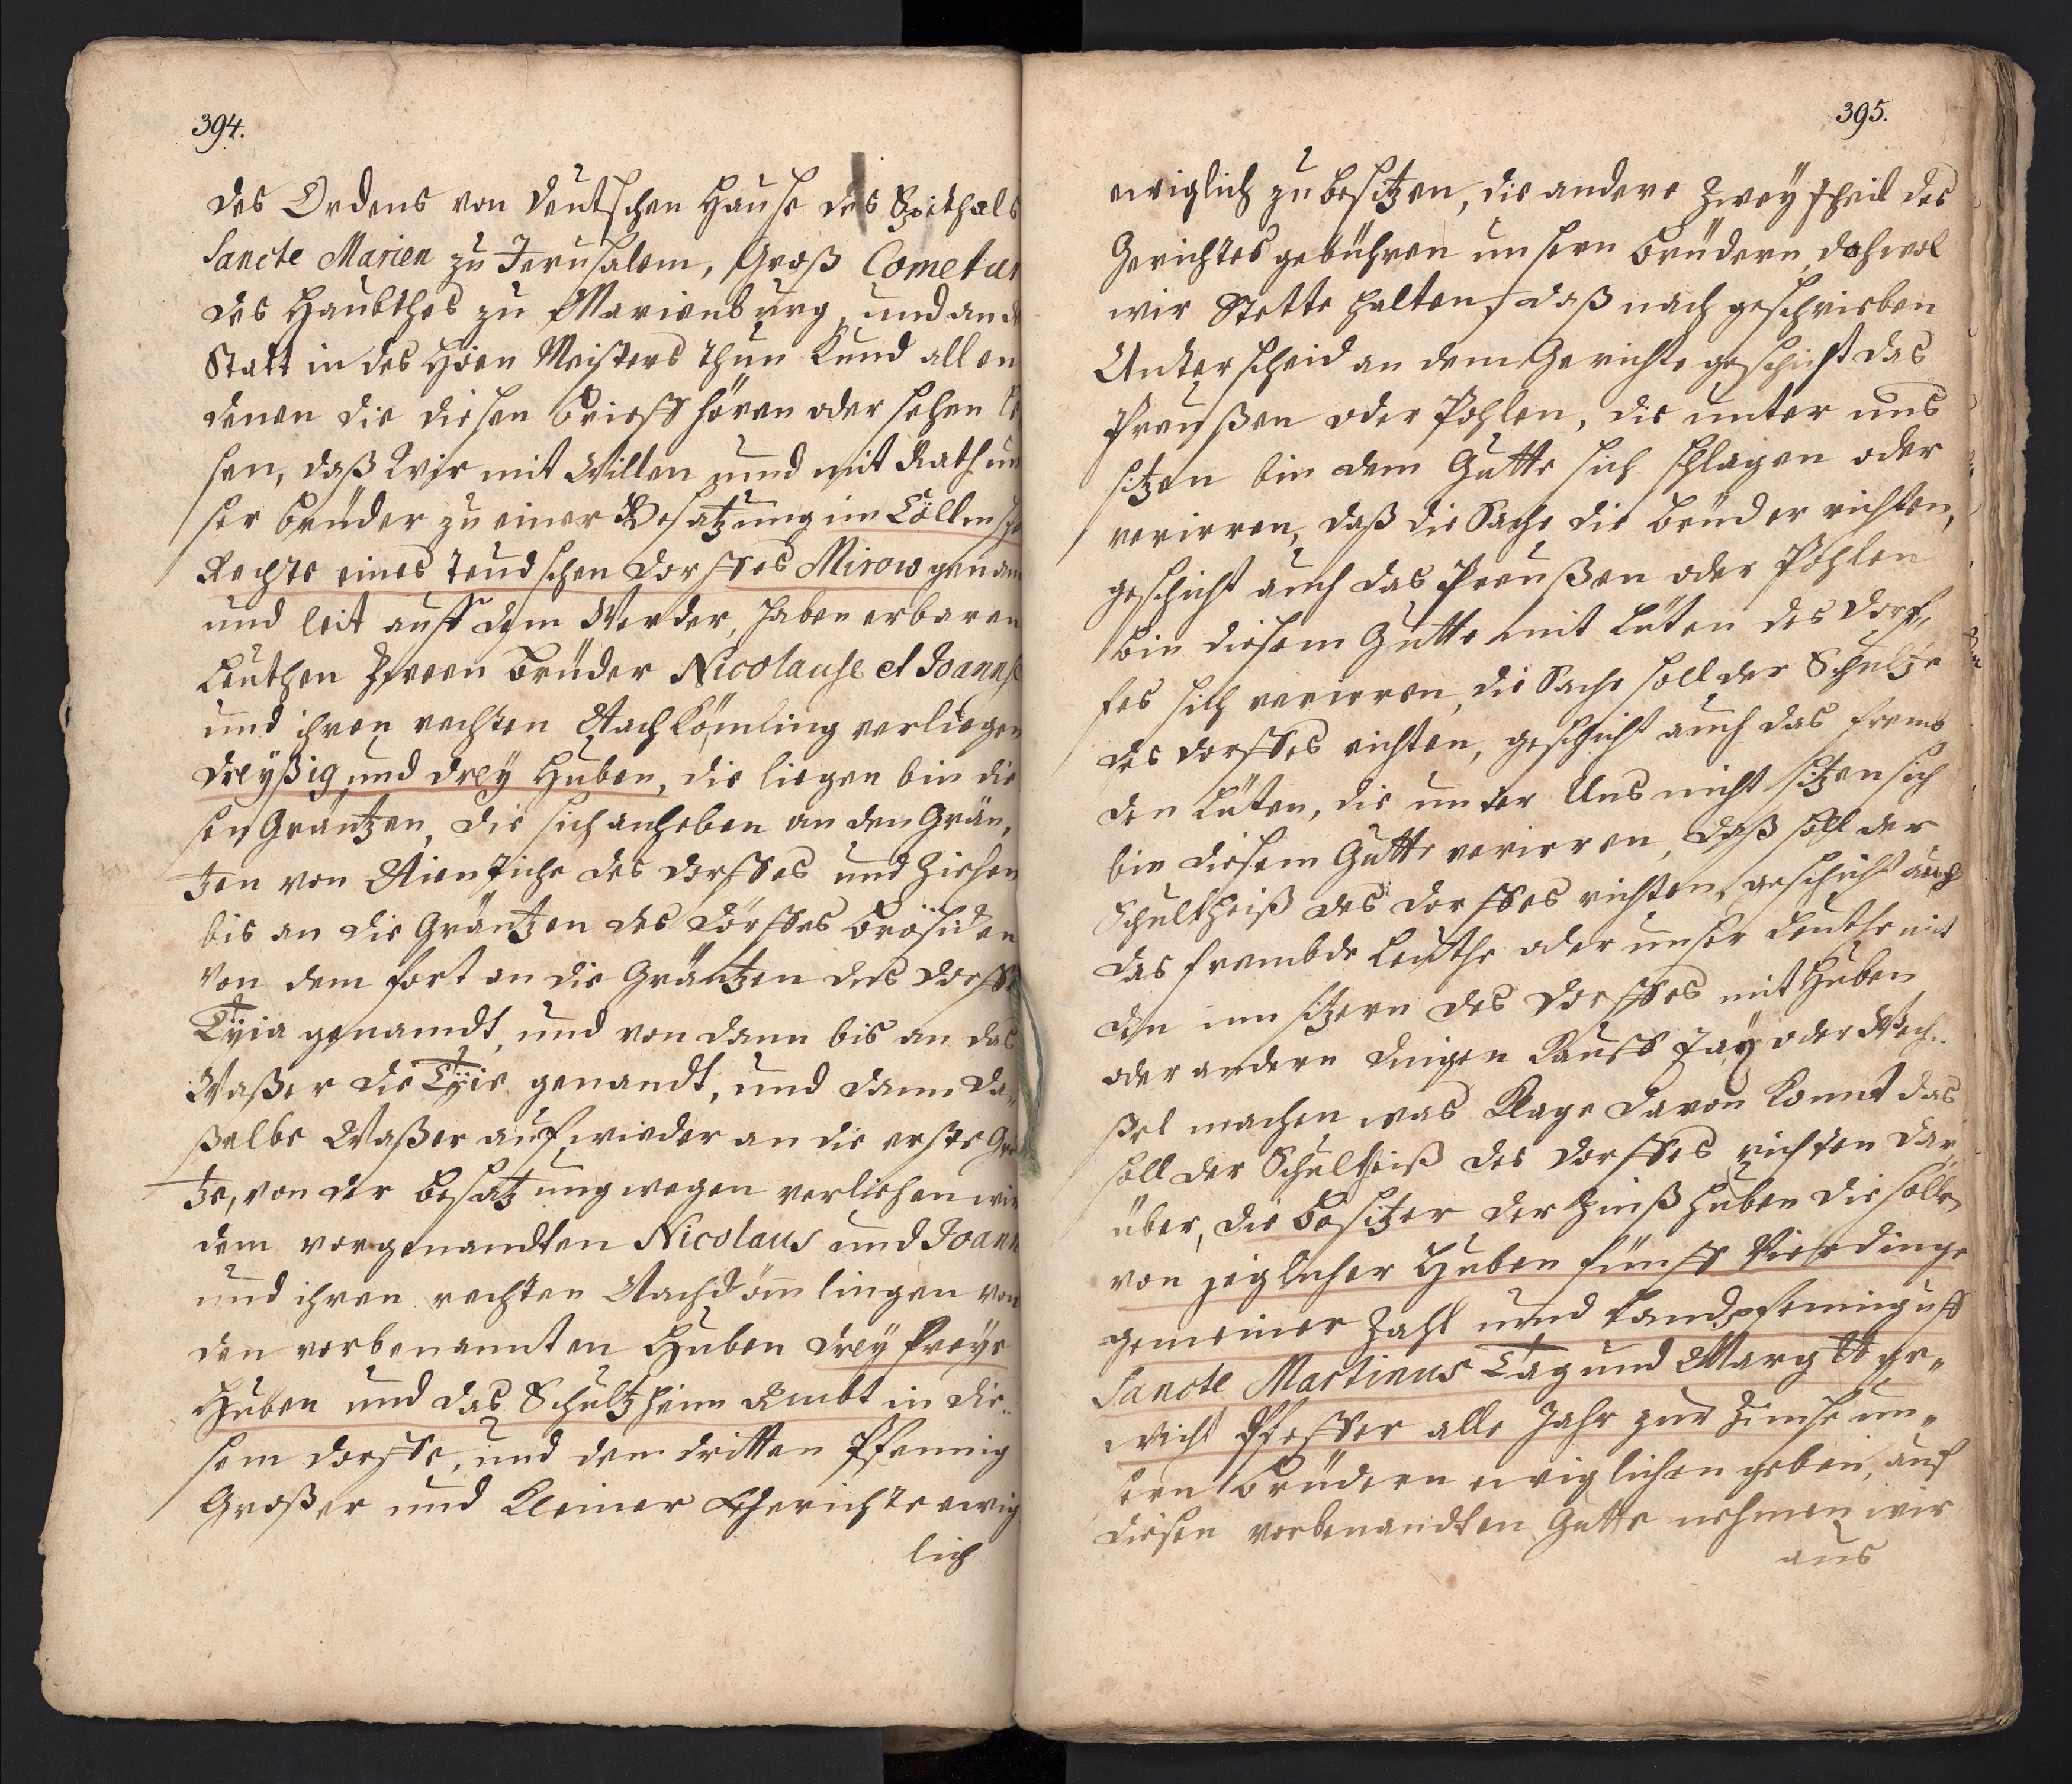 394.
des Ordens von deutschen Hause des Spithals
Sancte Marien zu Jerusalem, Groß Cometur
des Haubthes zu Marienburg, und an d
Statt in des Höen Meisters thun Kund allen
denen die diesen Brieff hören oder sehen le
sen, daß Wir mit Willen und mit Rath un
ser Brüder zu einer Besatzung im Cöllmsche
Rechte eines teudschen Dorffes Mirow genan
und leit auff dem Werder, haben erbaren
Leuthen Zween Brüder Nicolause et Joannse
und ihren rechten Nach Kömling verliegen
dreyßig und drey Huben, die liegen bin die
sen Gräntzen, die sich anheben an den Grän,
tzen von Nientiche des Dorffes und Ziehen
bis an die Gräntzen des Dörffes Brösiden
von dem fort an die Gräntzen des Dorffe
Tyia genamdt, und von dann bis an das
Waßer die Tyie genandt, und dann da„
ßelbe Waßer auf, wieder an die erste Gr
tze, von der Besatzung wegen verliehen wir
dem vorgenandten Nicolaus und Joann
und ihren rechten Nachkömlingen von
den vorbenannten Huben drey freye
Huben und das Schultzheim Ambt in die„
sem Dorffe, und dem dritten Pfennig
Großer und Kleiner Gerichte ewig
lich
395.
ewiglich zu besitzen, die andere Zwey theil des
Gerichtes gebühren unsern Brüdern, doch wol
wir Stette halten, daß nach geschrieben
Unterscheid an dem Gerichte geschicht das
Preußen oder Pohlen, die unter uns
sitzen bin dem Gutte sich schlagen oder
verirren, daß die Sache die Brüder richten,
geschicht auch das Preußen oder Pohlen
bin diesem Gutte mit Lüten des Dorf„
fes sich verirren, die Sache soll der Schultze
des Dorffes richten, geschicht auch das fremb
den Lüten, die unter Uns nicht sitzen sich
bin diesem Gutte verirren, daß soll der
Schultheiß des Dorffes richten, geschicht auch
das frembde Leuthe oder unser Leuthe mit
den inn sitzern des Dorffes mit Huben
oder andern dingen Kauff Jay oder Wech„
ßel machen was Klage davon Komt das
soll der Schultheiß des Dorffes richten dar„
über, die Besitzer der Zinß Huben die solle
von jeglicher Huben fünff Vierdinge
gemeiner Zahl und Landpfenning uff
Sancte Martinus Tag und Marg tt ge„
wicht Pfeffer alle Jahr zur Zinse un„
sern Brüdern ewiglichen geben, auf
diesen vorbenandten Gutte nehmen wir
aus